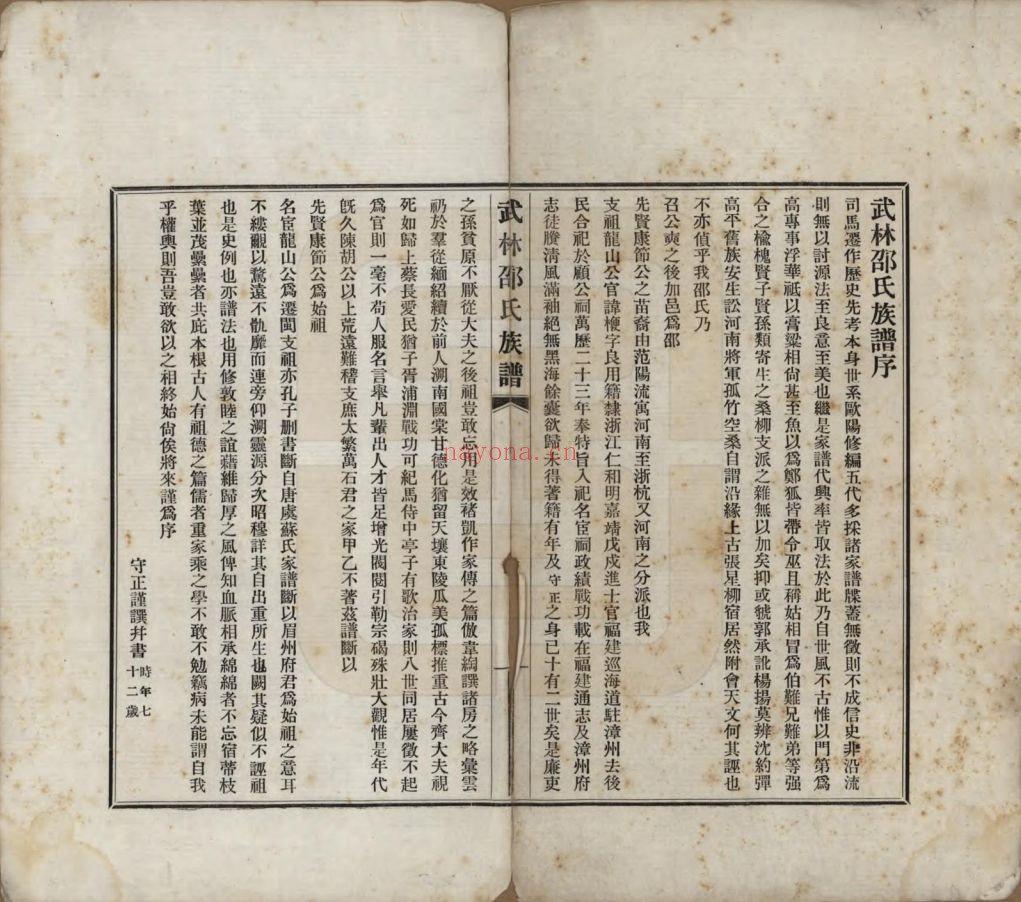 武林邵氏族譜序
司馬遷作歷史先考本身世系歐陽修編五代多採諸家譜牒蓋無徵則不成信史非沿流
則無以討源法至良意至美也繼是家譜代興率皆取法於此乃自世風不古惟以門第爲
高專事浮華祗以膏粱相尙甚至魚以爲鄭狐皆帶令巫且稱姑相冒爲伯難兄難弟等强
合之楡槐賢子賢孫類寄生之桑柳支派之雜無以加矣抑或虢郭承訛楊揚莫辨沈約彈
高平舊族安生訟河南將軍孤竹空桑自謂沿緣上古張星柳宿居然附會天文何其誣也
不亦傎乎我邵氏乃
召公奭之後加邑爲邵
先賢康節公之苗裔由范陽流寓河南至浙杭又河南之分派也我
支祖龍山公官諱楩字良用籍隸浙江仁和明嘉靖戊戌進士官福建巡海道駐漳州去後
民合祀於顧公祠萬歷二十三年奉特旨入祀名宦祠政績戰功載在福建通志及漳州府
志徒賸淸風滿袖絕無黑海餘囊欲歸未得著籍有年及守正之身已十有二世矣是廉吏
武林邵氏族譜
一
之孫貧原不厭從大夫之後祖豈敢忘用是效褚凱作家傳之篇倣韋絢譔諸房之略彙雲
礽於羣從緬紹續於前人溯南國棠甘德化猶留天壤東陵瓜美孤標推重古今齊大夫視
死如歸上蔡長愛民猶子胥浦淵戰功可紀馬侍中亭子有歌治家則八世同居屢徵不起
爲官則一毫不苟人服名言舉凡輩出人才皆足增光閥閱引勒宗碣殊壯大觀惟是年代
旣久陳胡公以上荒遠難稽支庶太繁萬石君之家甲乙不著茲譜斷以
先賢康節公爲始祖
名宦龍山公爲遷閩支祖亦孔子删書斷自唐虞蘇氏家譜斷以眉州府君爲始祖之意耳
不縷覼以騖遠不骫靡而連旁仰溯靈源分次昭穆詳其自出重所生也闕其疑似不誣祖
也是史例也亦譜法也用修敦睦之誼藉維歸厚之風俾知血脈相承綿綿者不忘宿蒂枝
葉並茂纍纍者共庇本根古人有祖德之篇儒者重家乘之學不敢不勉竊病未能謂自我
乎權輿則吾豈敢欲以之相終始尙俟將來謹爲序
守正謹譔幷書時年七十二歲
nayona.cn